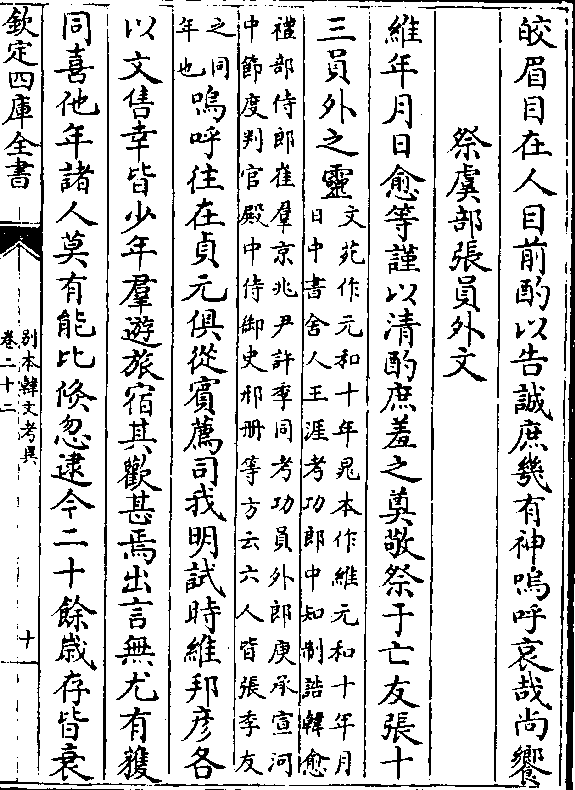 皎眉目在人目前酌以告誠庶幾有神嗚呼哀哉尚饗
祭虞部張員外文
維年月日愈等謹以清酌庶羞之奠敬祭于亡友張十
三員外之靈文苑作元和十年晁本作維元和十年月
日中書舍人王涯考功郎中知制誥韓愈
禮部侍郎崔羣京兆尹許季同考功員外郎庾承宣河
中節度判官殿中侍御史邢册等方云六人皆張季友
之同
年也嗚呼往在貞元俱從賓薦司我明試時維邦彦各
以文售幸皆少年羣遊旅宿其歡甚焉出言無尤有獲
同喜他年諸人莫有能比倐忽逮今二十餘嵗存皆衰
欽定四庫全書
别本韓文考異
卷二十二
十